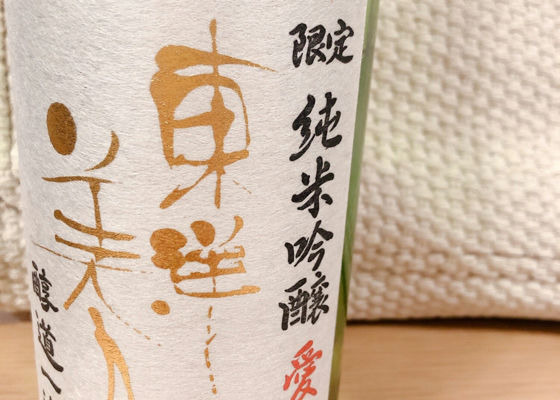 限定
純米吟醸
愛
東洋
美人
醇道一